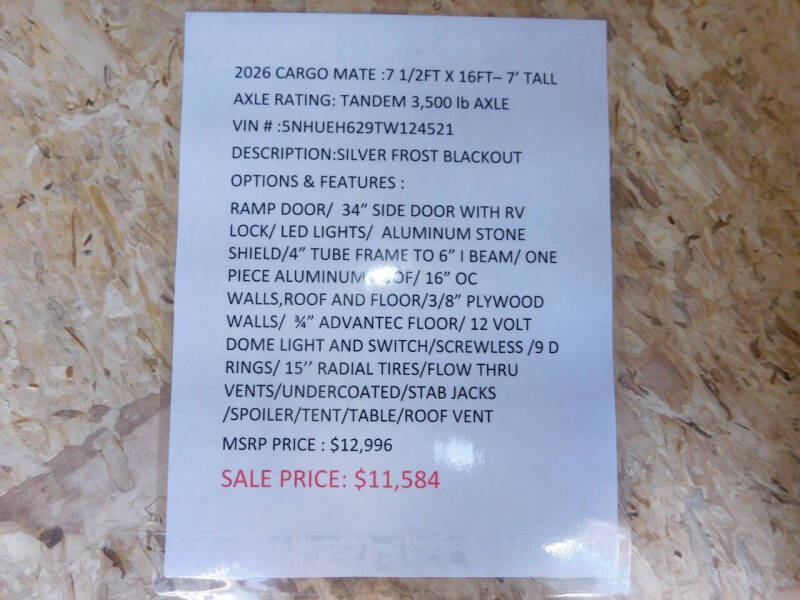 2026 CARGO MATE :7 1/2FT X 16FT– 7’ TALL
AXLE RATING: TANDEM 3,500 lb AXLE
VIN # :5NHUEH629TW124521
DESCRIPTION:SILVER FROST BLACKOUT
OPTIONS & FEATURES :
RAMP DOOR/ 34” SIDE DOOR WITH RV
LOCK/ LED LIGHTS/ ALUMINUM STONE
SHIELD/4” TUBE FRAME TO 6” I BEAM/ ONE
PIECE ALUMINUM ROOF/ 16” OC
WALLS,ROOF AND FLOOR/3/8” PLYWOOD
WALLS/ ¾” ADVANTEC FLOOR/ 12 VOLT
DOME LIGHT AND SWITCH/SCREWLESS /9 D
RINGS/ 15’’ RADIAL TIRES/FLOW THRU
VENTS/UNDERCOATED/STAB JACKS
/SPOILER/TENT/TABLE/ROOF VENT
MSRP PRICE : $12,996
SALE PRICE: $11,584